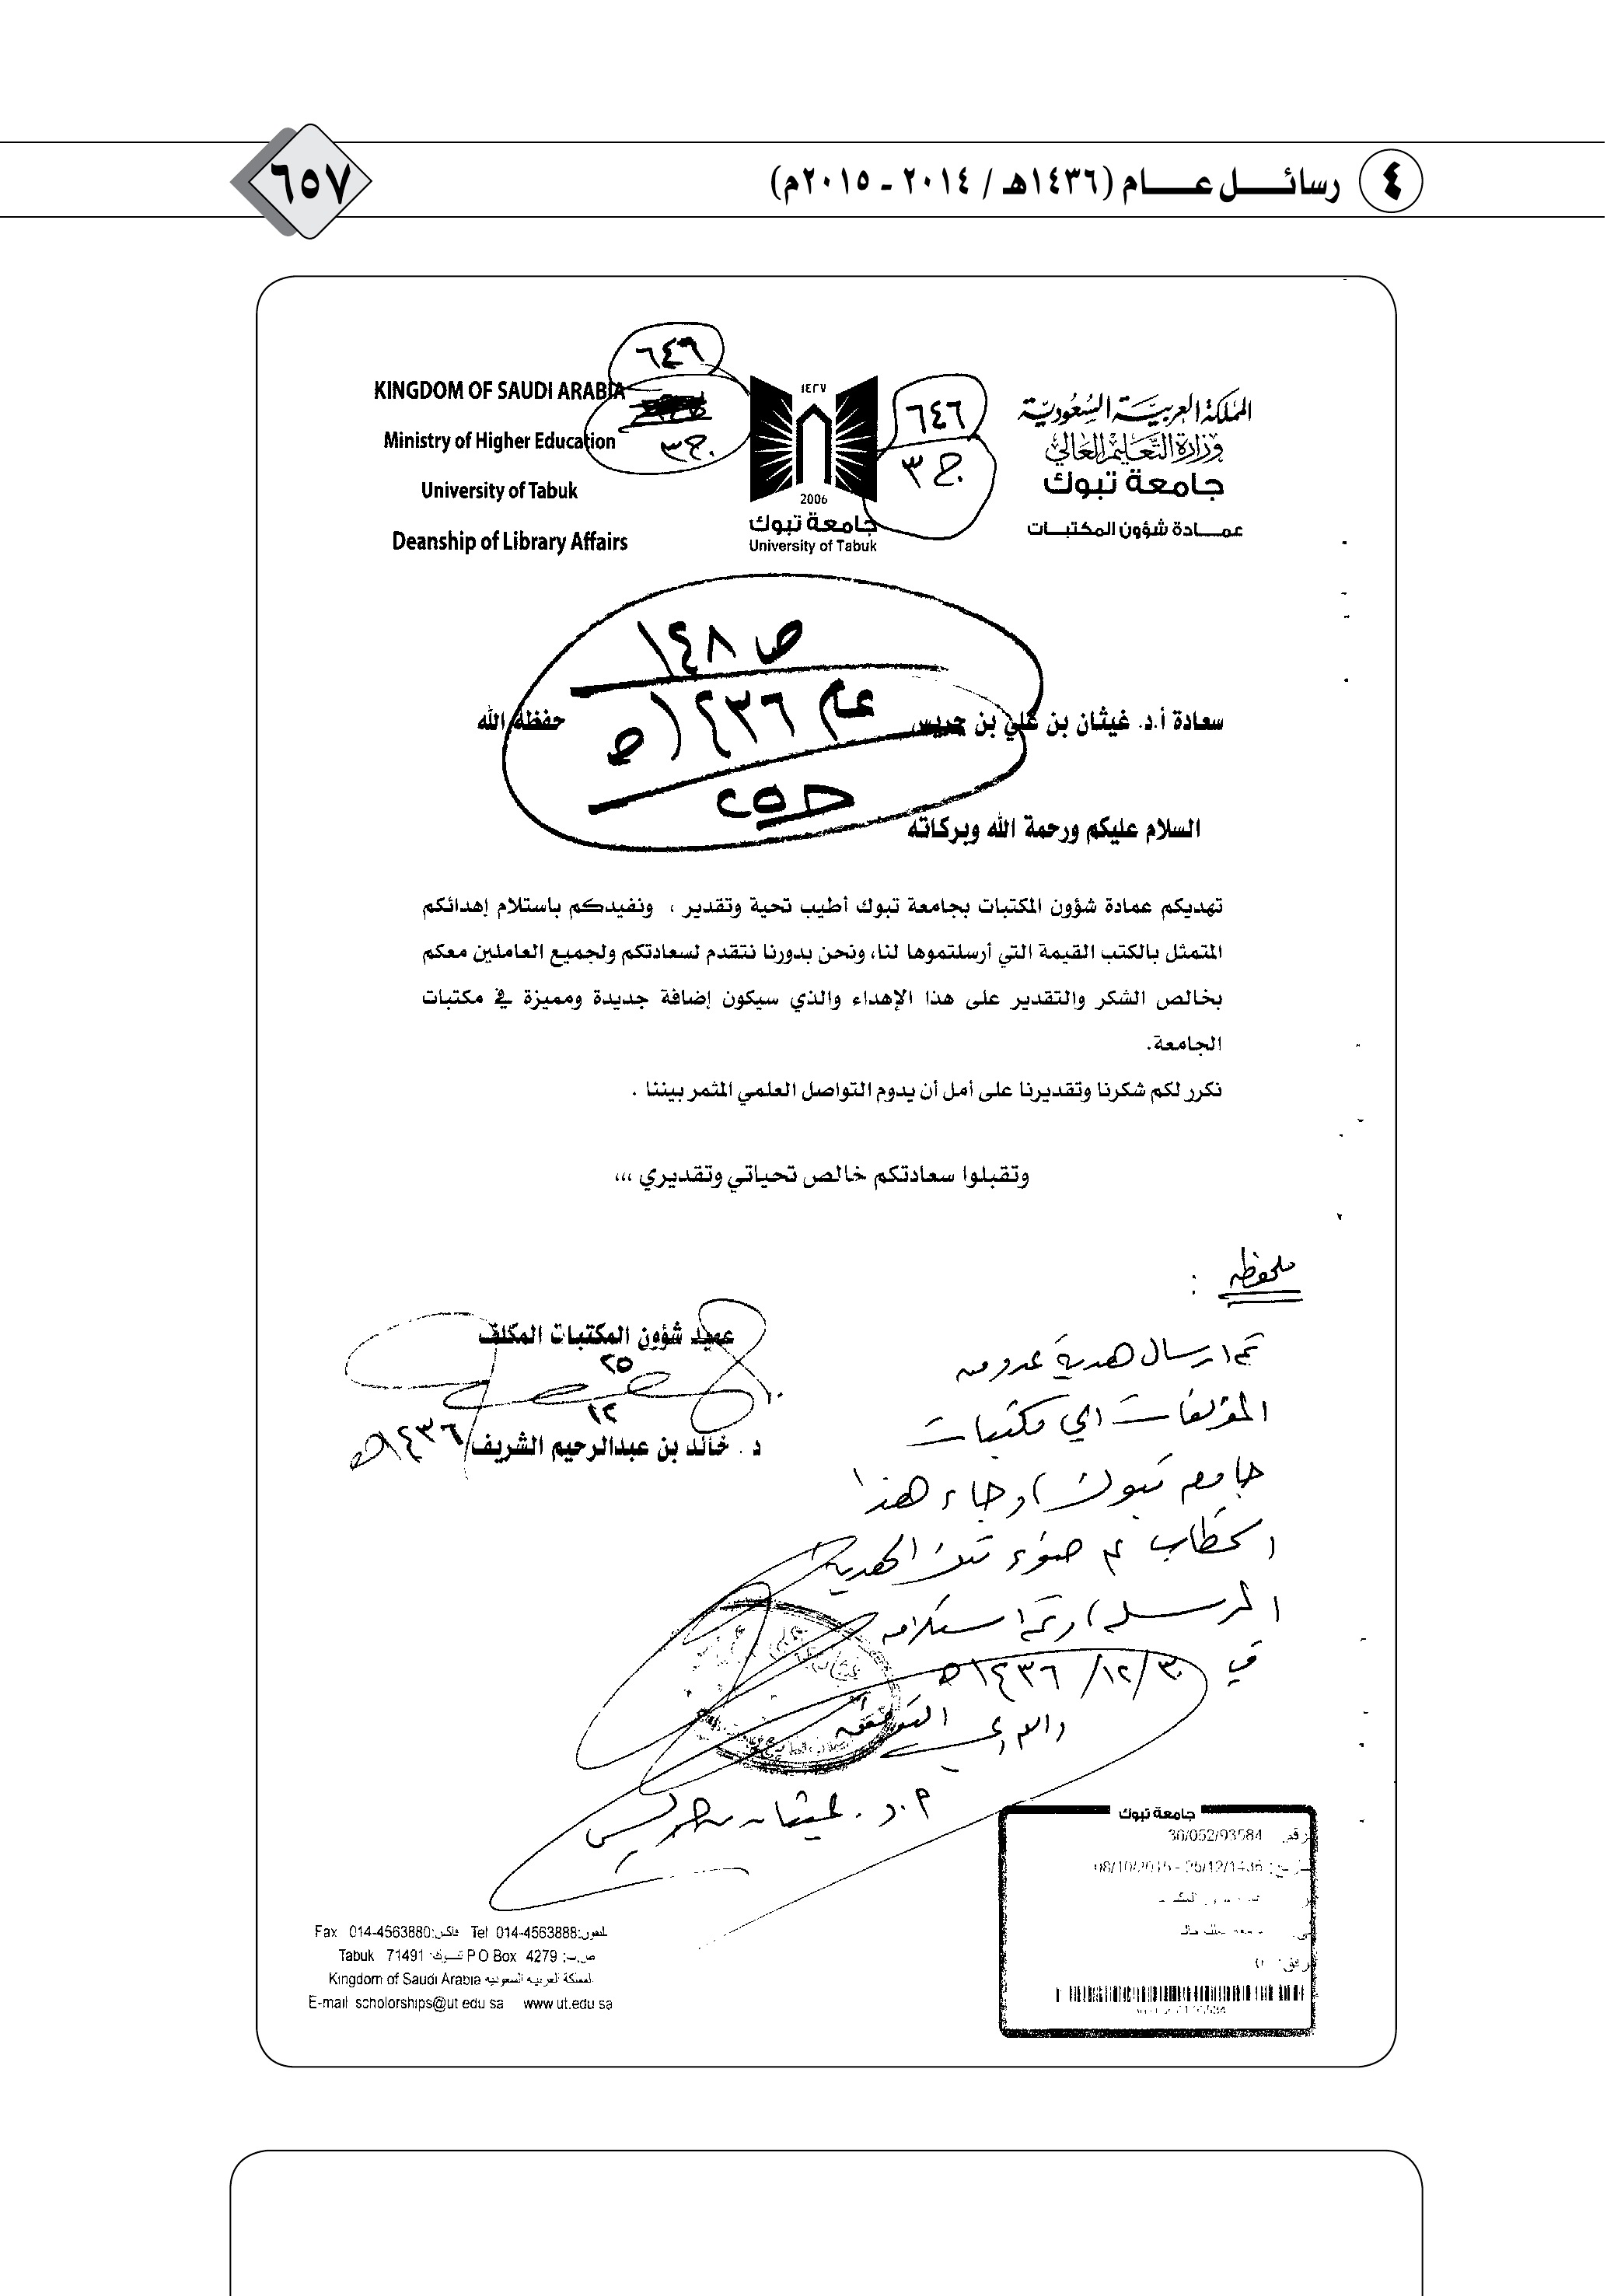 ٤ رسائل عام (١٤٣٦هـ / ٢٠١٤ - ٢٠١٥م)
٦٥٧
المملكة العربية السعودية
وزارة التعليم العالي
جامعة تبوك
عمادة شؤون المكتبات
٦٤٦
ج ٣
١٤٢٧
2006
جامعة تبوك
University of Tabuk
٦٤٦
ج ٣
KINGDOM OF SAUDI ARABIA
Ministry of Higher Education
University of Tabuk
Deanship of Library Affairs
ص ١٤٨
عام ١٤٣٦هـ
سعادة أ.د. غيثان بن علي بن جريس حفظه الله
السلام عليكم ورحمة الله وبركاته
تهديكم عمادة شؤون المكتبات بجامعة تبوك أطيب تحية وتقدير ، ونفيدكم باستلام إهدائكم
المتمثل بالكتب القيمة التي أرسلتموها لنا، ونحن بدورنا نتقدم لسعادتكم ولجميع العاملين معكم
بخالص الشكر والتقدير على هذا الإهداء والذي سيكون إضافة جديدة ومميزة في مكتبات
الجامعة.
نكرر لكم شكرنا وتقديرنا على أمل أن يدوم التواصل العلمي المثمر بيننا .
وتقبلوا سعادتكم خالص تحياتي وتقديري ،،،
عميد شؤون المكتبات المكلف
٢٥
١٢
د . خالد بن عبدالرحيم الشريف
١٤٣٦هـ
ملحوظة :
تم ارسال هدية عدد من
المؤلفات الى مكتبات
جامعة تبوك، وجاء هذا
الخطاب في ضوء تلك الهدية
المرسلة، وتم استلامه
في ٣٠/ ١٢/ ١٤٣٦هـ
والله ولي التوفيق
أ.د. غيثان بن جريس
جامعة تبوك
36/052/93584
08/10/2015 - 25/12/1436
Fax 014-4563880:فاكس Tel 014-4563888:تلفون
Tabuk 71491 :تبوك P O Box 4279 :ص.ب
Kingdom of Saudi Arabia المملكة العربية السعودية
E-mail scholorships@ut edu sa www ut.edu sa